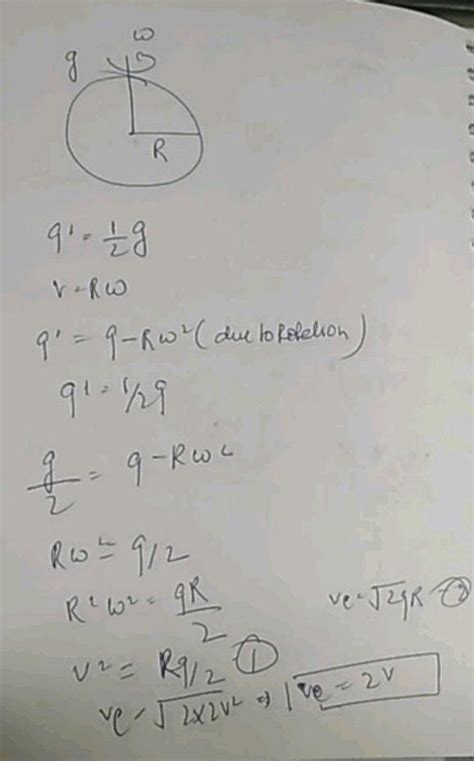 ω
g
R
g' = 1/2 g
v = Rω
g' = g - Rω² (due to Rotation)
g' = 1/2 g
g/2 = g - Rω²
Rω² = g/2
R²ω² = gR/2
ve = √2gR ②
v² = Rg/2 ①
ve = √2×2v² ⇒ ve = 2v